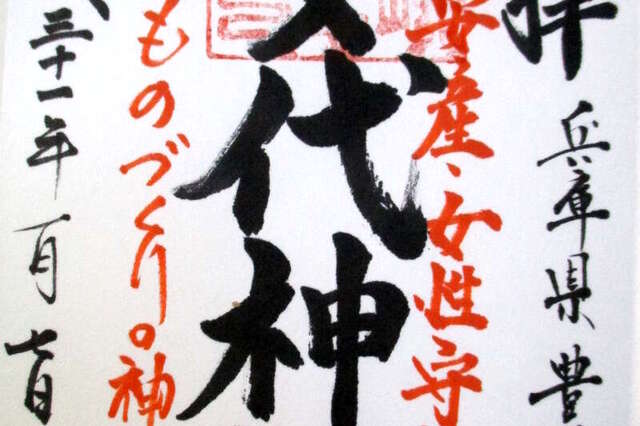 拝
兵庫県豊
安産・女性守
代神
ものづくりの神
三十一年一月七日